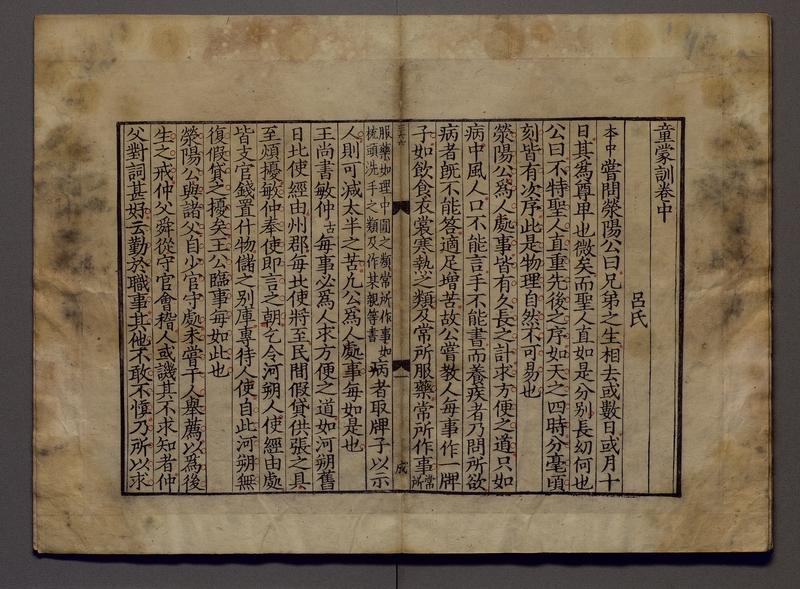 童蒙訓卷中
呂氏
本中嘗問滎陽公曰兄弟之生相去或數日或月十
日其為尊卑也微矣而聖人直如是分別長幼何也
公曰不特聖人直重先後之序如天之四時分毫頃
刻皆有次序此是物理自然不可易也
滎陽公為人處事皆有久長之計求方便之道只如
病中風人口不能言手不能書而養疾者乃問所欲
病者旣不能答適足增苦故公嘗教人每事作一牌
子如飲食衣裳寒熱之類及常所服藥常所作事常所
服藥如理中圓之類常所作事如
梳頭洗手之類及作某親等書
病者取牌子以示
人則可減太半之苦凡公為人處事每如是也
王尚書敏仲古每事必為人求方便之道如河朔舊
日北使經由州郡每北使將至民間假貸供張之具
至煩擾敏仲奉使即言之朝乞令河朔人使經由處
皆支官錢置什物儲之别庫專待人使自此河朔無
復假貸之擾矣王公臨事每如此也
滎陽公與諸父自少官守處未嘗干人舉薦以為後
生之戒仲父舜從守官會稽人或譏其不求知者仲
父對詞甚好云勤於職事其他不敢不慎乃所以求
成